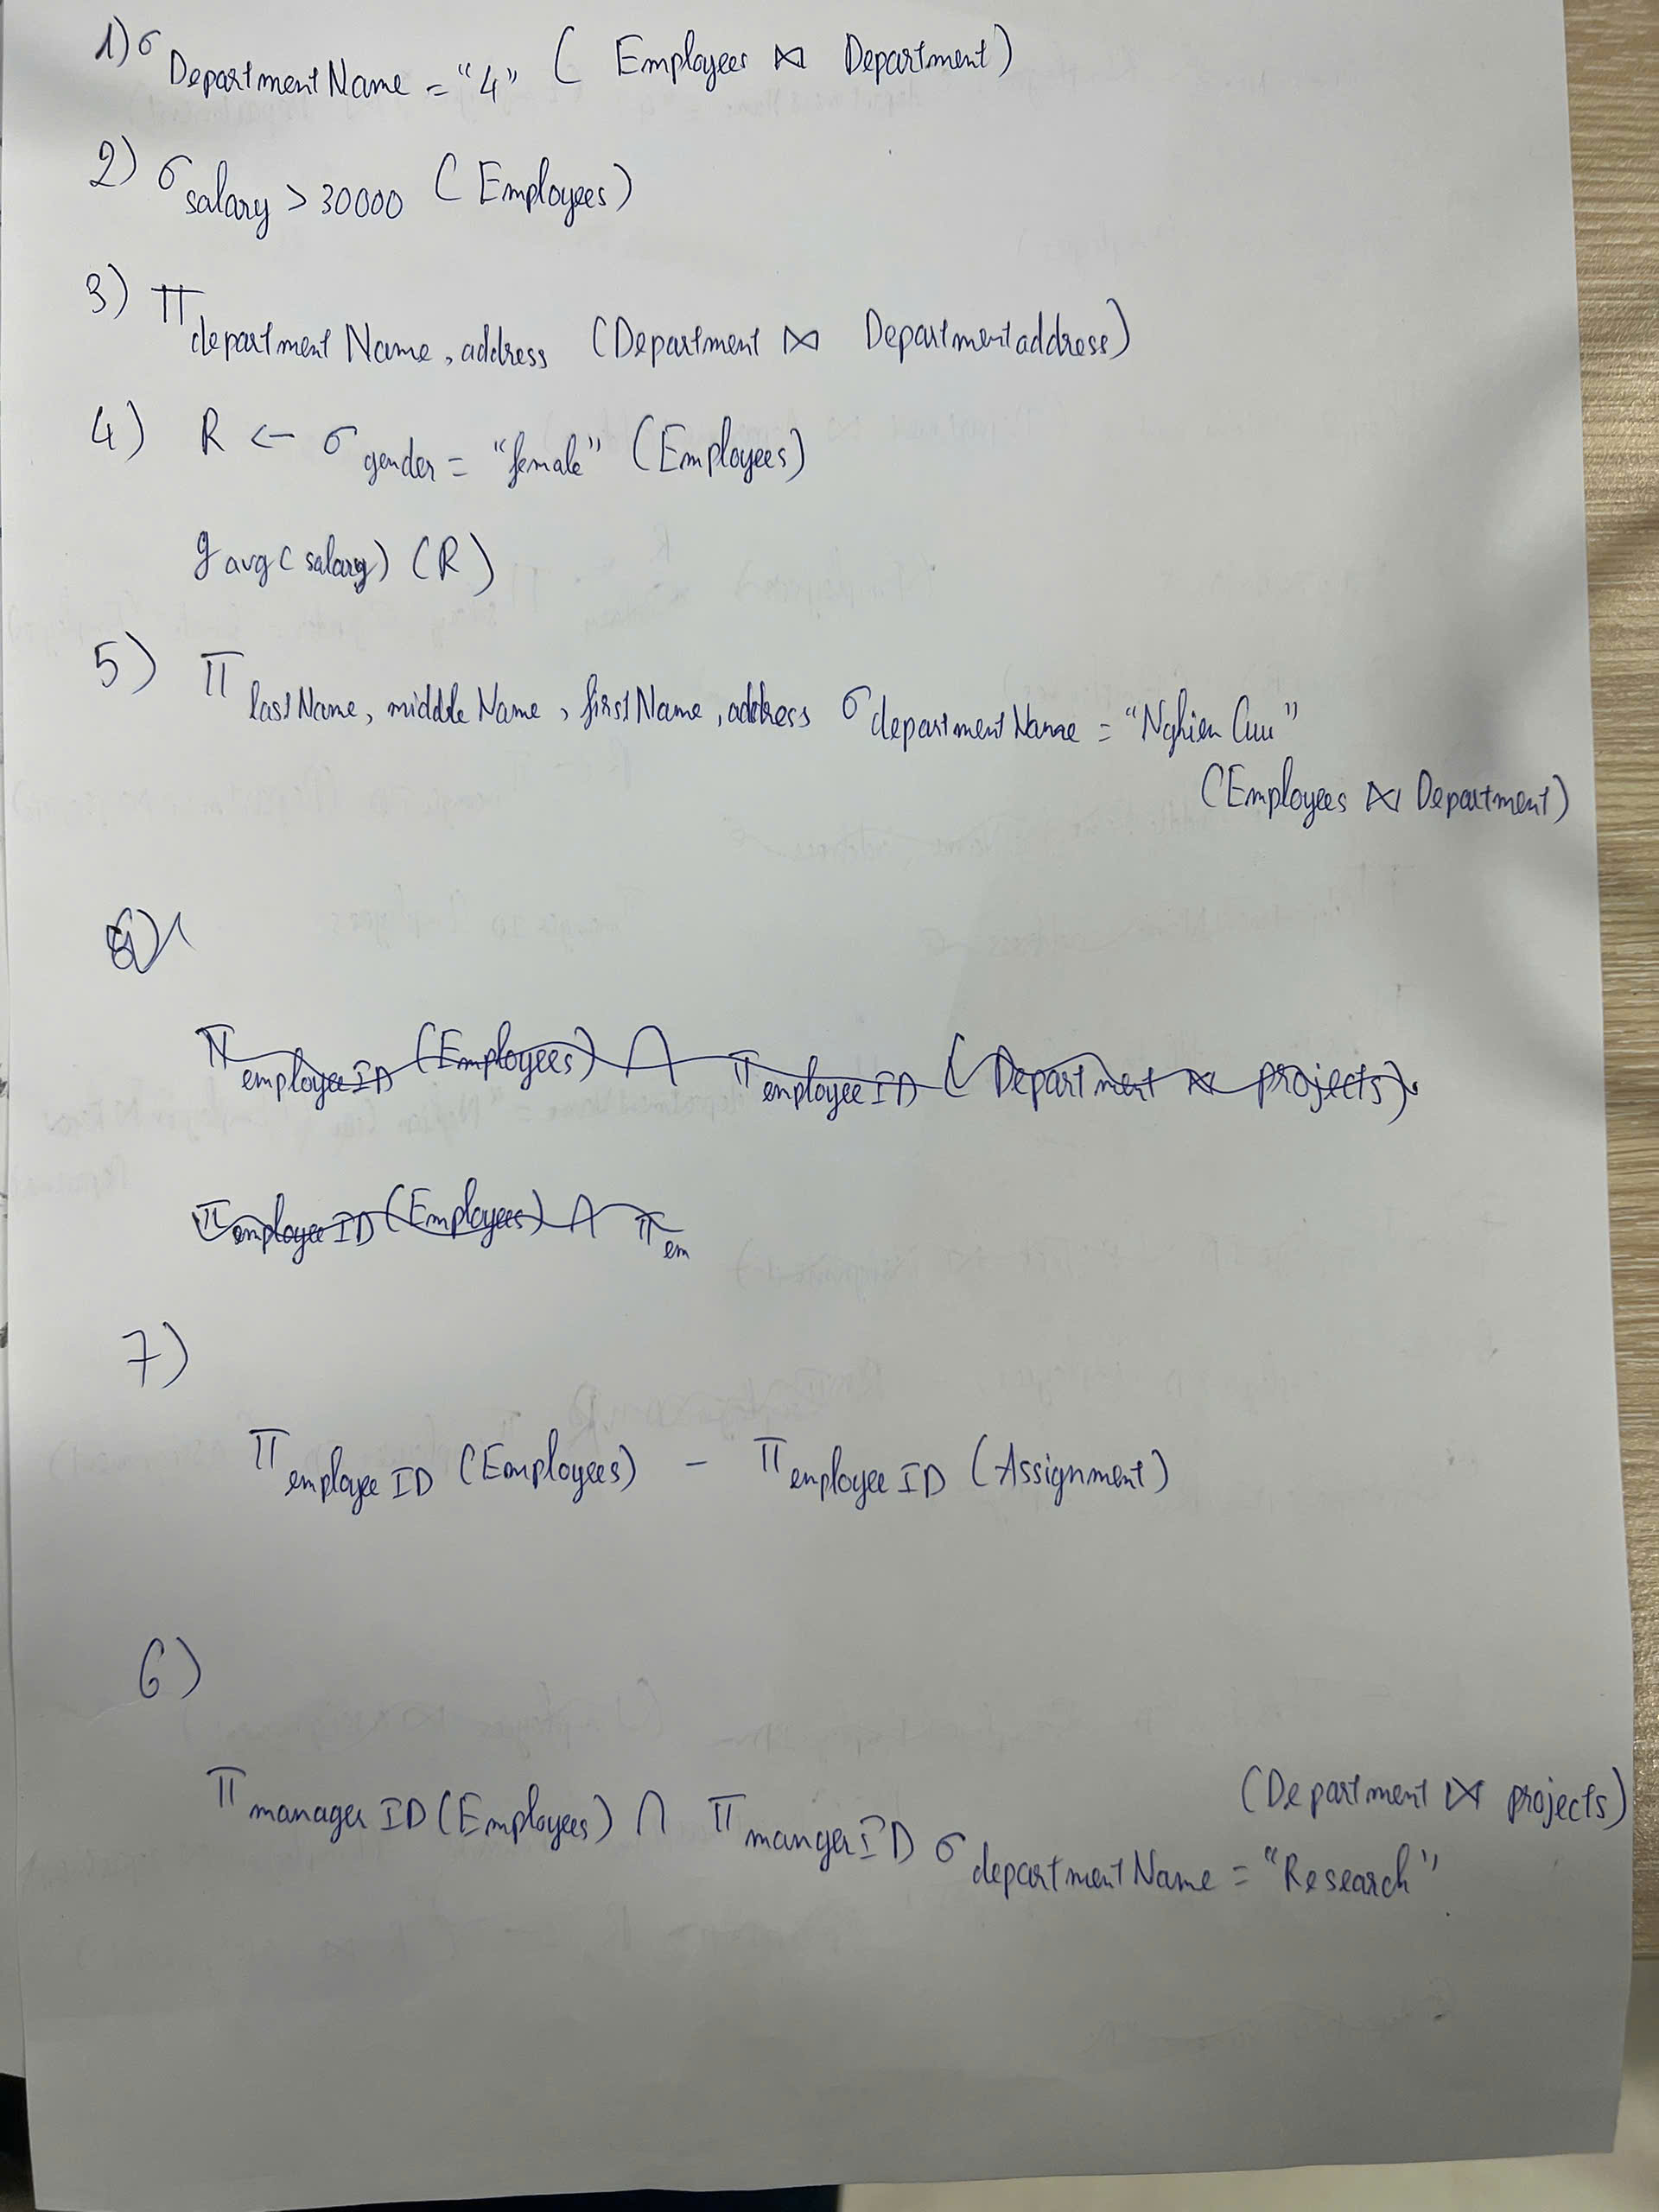 1) σ DepartmentName = "4" ( Employees ⋈ Department)
2) σ salary > 30000 ( Employees)
3) π departmentName, address (Department ⋈ Departmentaddress)
4) R ← σ gender = "female" (Employees)
g avg( salary) (R)
5) π lastName, middleName, firstName, address σ departmentName = "Nghien Cuu"
(Employees ⋈ Department)
π employeeID (Employees) ∩ π employeeID ( Department ⋈ projects)
π employeeID (Employees) ∩ π em
7)
π employeeID (Employees) - π employeeID (Assignment)
6)
π managerID (Employees) ∩ π mangerID σ departmentName = "Research" (Department ⋈ projects)